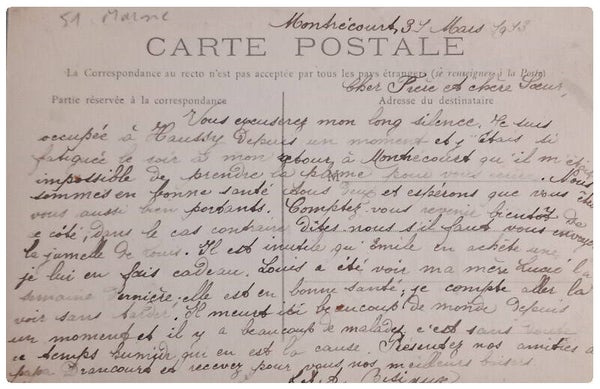 51 Marne
Montrécourt, 31 Mars 1913
CARTE POSTALE
La Correspondance au recto n'est pas acceptée par tous les pays étrangers (se renseigner à la Poste)
Cher Frère et chère Sœur,
Partie réservée à la correspondance
Adresse du destinataire
Vous excuserez mon long silence. Je suis
occupée à Haussy depuis un moment et j'étais si
fatiguée le soir à mon retour à Montrécourt qu'il m'était
impossible de prendre la plume pour vous écrire. Nous
sommes en bonne santé tous deux et espérons que vous êtes
vous aussi bien portants. Comptez-vous revenir bientôt de
ce côté, dans le cas contraire dites-nous s'il faut vous envoyer
la jumelle de Louis. Il est inutile qu'Emile en achète une,
je lui en fais cadeau. Louis a été voir ma mère Lucie la
semaine dernière, elle est en bonne santé, je compte aller la
voir sans tarder. Il meurt ici beaucoup de monde depuis
un moment et il y a beaucoup de malades, c'est sans doute
ce temps humide qui en est la cause. Présentez nos amitiés à
papa Drancourt et recevez pour vous nos meilleurs baisers